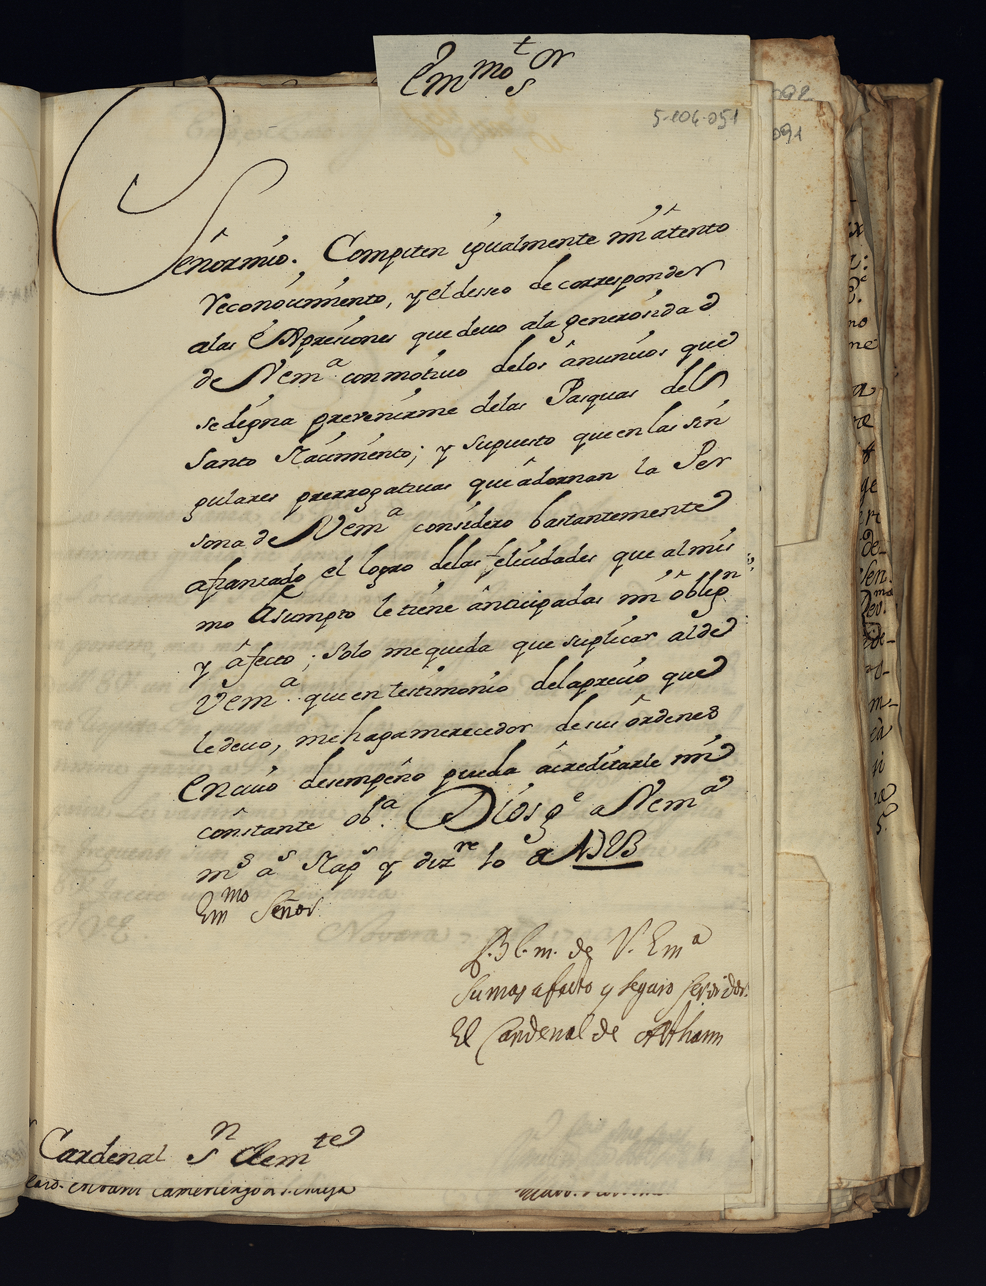 Em^mo S^or
5-106-051
Señor mio. Compiten igualmente mi atento
reconocimiento, y el deseo de corresponder
a las Expresiones que devo ala generosidad
de V em^a con motivo delos anuncios que
se digna prevenirme delas Pasquas del
Santo Nacimiento; y supuesto que en las sin
gulares prerrogativas que adornan la Per
sona de V em^a considero bastantemente
afianzado el logro delas felicidades que al mis
mo Asumpto le tiene anticipadas mi oblig^n
y afecto; solo me queda que suplicar al de
Vem^a que en testimonio del aprecio que
le devo, me haga merecedor de sus órdenes
en cuio desempeño pueda acreditarle mi
constante ob^a. Dios g^e a V em^a
m^s a^s Nap^s y diz^re 10 a 1723
Em^mo Señor
B. l. m. de V. Em^a
su mas afecto y seguro servidor
El Cardenal de Althann
Cardenal S^n Clem^te